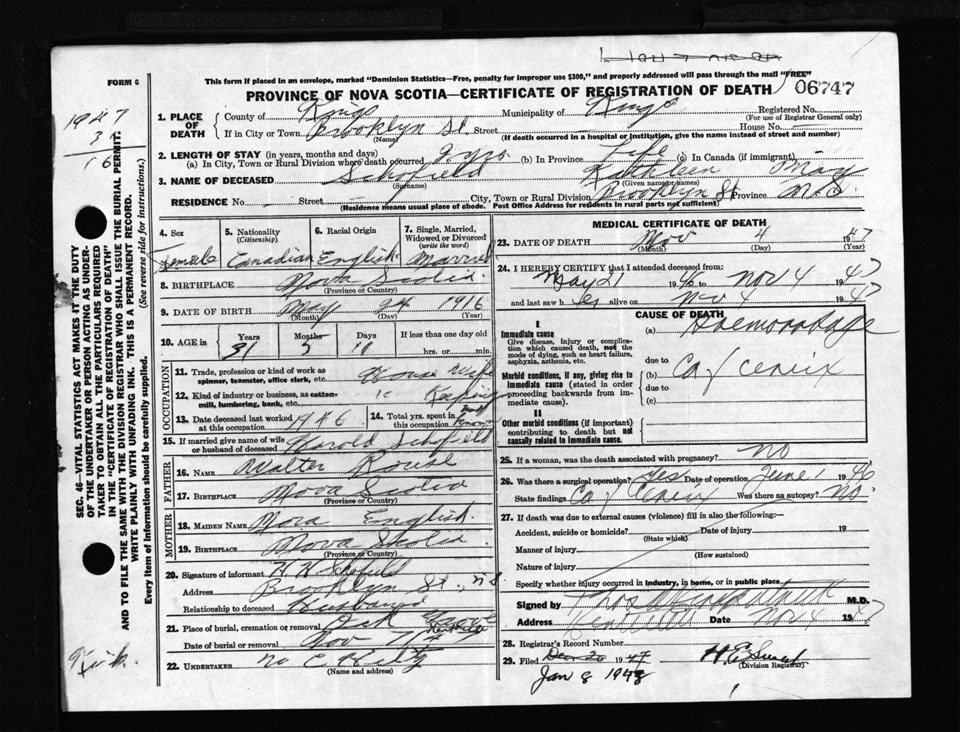 FORM 6
This form if placed in an envelope, marked "Dominion Statistics—Free, penalty for improper use $300," and properly addressed will pass through the mail "FREE"
PROVINCE OF NOVA SCOTIA—CERTIFICATE OF REGISTRATION OF DEATH
06747
1947
3
16
SEC. 46—VITAL STATISTICS ACT MAKES IT THE DUTY
OF THE UNDERTAKER OR PERSON ACTING AS UNDER-
TAKER TO OBTAIN ALL THE PARTICULARS REQUIRED
IN THE "CERTIFICATE OF REGISTRATION OF DEATH"
AND TO FILE THE SAME WITH THE DIVISION REGISTRAR WHO SHALL ISSUE THE BURIAL PERMIT.
WRITE PLAINLY WITH UNFADING INK. THIS IS A PERMANENT RECORD.
Every item of Information should be carefully supplied. (See reverse side for instructions.)
1. PLACE OF DEATH
County of Kings Municipality of Kings Registered No.
(For use of Registrar General only)
If in City or Town Brooklyn St. Street House No. —
(Name) (If death occurred in a hospital or institution, give the name instead of street and number)
2. LENGTH OF STAY (in years, months and days)
(a) In City, Town or Rural Division where death occurred 2 yrs. (b) In Province Life (c) In Canada (if immigrant)
3. NAME OF DECEASED Schofield Kathleen May
(Surname) (Given name or names)
RESIDENCE No. — Street — City, Town or Rural Division Brooklyn St Province N.S.
(Residence means usual place of abode. Post Office Address for residents in rural parts not sufficient)
4. Sex
Female
5. Nationality
(Citizenship)
Canadian
6. Racial Origin
English
7. Single, Married, Widowed or Divorced
(write the word)
Married
8. BIRTHPLACE Nova Scotia
(Province or Country)
9. DATE OF BIRTH May 24 1916
(Month) (Day) (Year)
10. AGE in Years Months Days If less than one day old
31 5 10 hrs. or min.
OCCUPATION
11. Trade, profession or kind of work as spinner, teamster, office clerk, etc. House wife
12. Kind of industry or business, as cotton-mill, lumbering, bank, etc. Keeping
13. Date deceased last worked at this occupation 1946
14. Total yrs. spent in this occupation
15. If married give name of wife or husband of deceased Harold Schofield
FATHER
16. NAME Walter Rouse
17. BIRTHPLACE Nova Scotia
(Province or Country)
MOTHER
18. MAIDEN NAME Nora English
19. BIRTHPLACE Nova Scotia
(Province or Country)
20. Signature of informant H W Schofield
Address Brooklyn St., N S
Relationship to deceased Husband
21. Place of burial, cremation or removal Oak Grove Kentville
Date of burial or removal Nov 7th
22. UNDERTAKER
(Name and address)
MEDICAL CERTIFICATE OF DEATH
23. DATE OF DEATH Nov 4 1947
(Month) (Day) (Year)
24. I HEREBY CERTIFY that I attended deceased from:
May 21 1946 to Nov 4 1947
and last saw her alive on Nov 4 1947
CAUSE OF DEATH
I
Immediate cause
Give disease, injury or complication which caused death, not the mode of dying, such as heart failure, asphyxia, asthenia, etc.
(a) Haemorrhage
due to
Morbid conditions, if any, giving rise to immediate cause (stated in order proceeding backwards from immediate cause).
(b) Ca / Cervix
due to
(c)
II
Other morbid conditions (if important) contributing to death but not causally related to immediate cause.
25. If a woman, was the death associated with pregnancy? no
26. Was there a surgical operation? yes Date of operation June 1 1946
State findings Ca / Cervix Was there an autopsy? No
27. If death was due to external causes (violence) fill in also the following:—
Accident, suicide or homicide? Date of injury 19
(State which)
Manner of injury
(How sustained)
Nature of injury
Specify whether injury occurred in industry, in home, or in public place
Signed by M.D.
Address Kentville Date Nov 4 1947
28. Registrar's Record Number
29. Filed Dec 20 1947
(Division Registrar)
Jan 8 1948